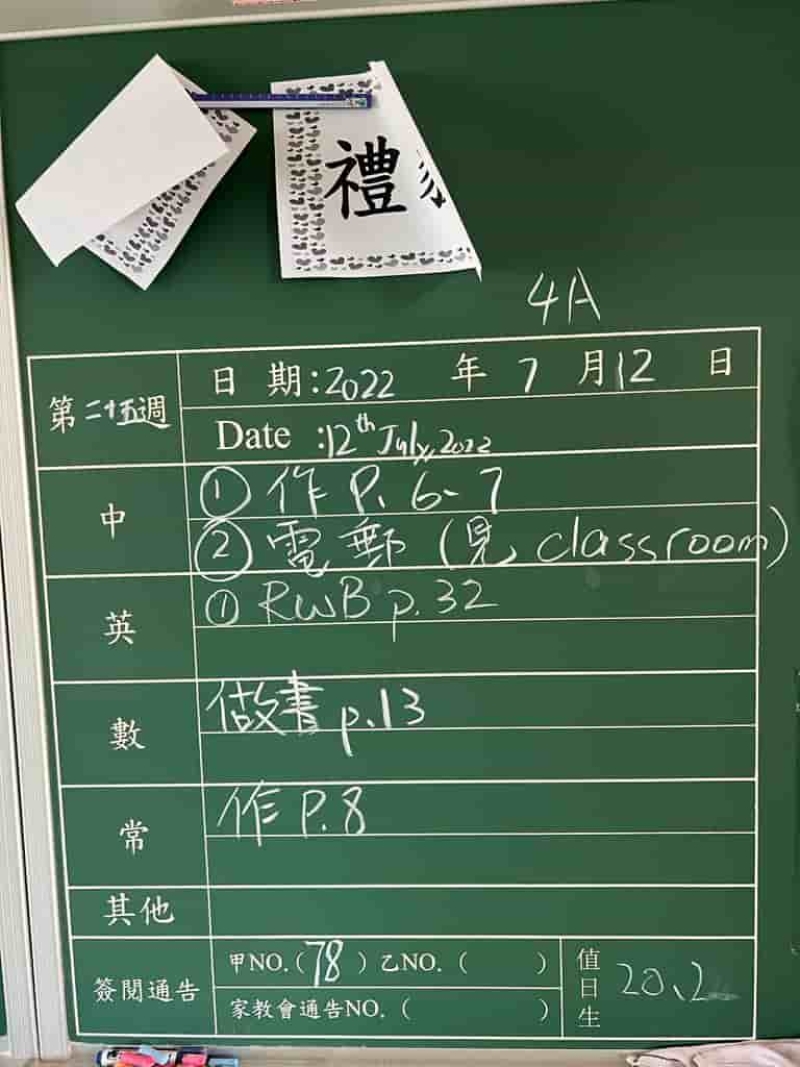 禮
4A
第二十五週
日 期:2022 年 7 月12 日
Date :12th July, 2022
中
① 作 P. 6-7
② 電郵 (見 classroom)
英
① RWB p.32
數
做書 p.13
常
作 P.8
其他
簽閱通告
甲NO.(78) 乙NO. ( )
家教會通告NO. ( )
值日生
20、2